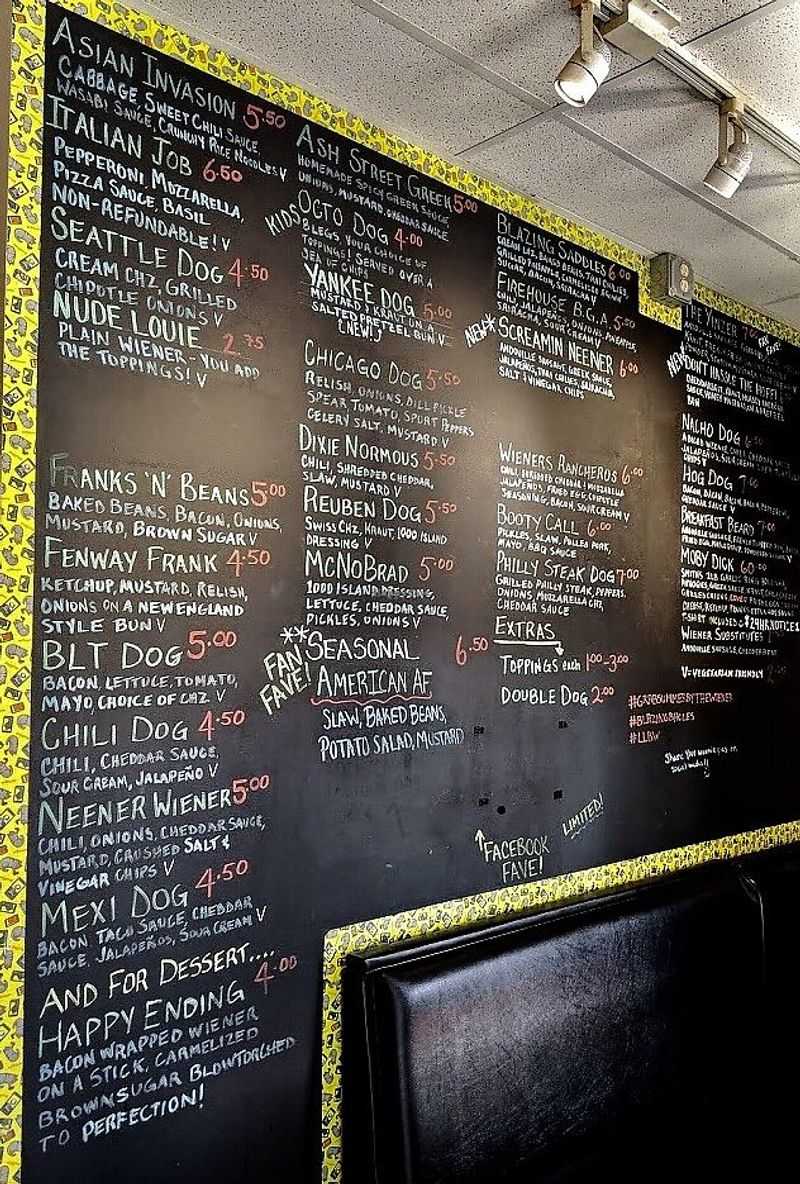 ASIAN INVASION 5.50
CABBAGE, SWEET CHILI SAUCE,
WASABI SAUCE, CRUNCHY RICE NOODLES V
ITALIAN JOB 6.50
PEPPERONI, MOZZARELLA,
PIZZA SAUCE, BASIL
NON-REFUNDABLE! V
SEATTLE DOG 4.50
CREAM CHZ, GRILLED
CHIPOTLE ONIONS V
NUDE LOUIE 2.75
PLAIN WIENER - YOU ADD
THE TOPPINGS! V
FRANKS 'N' BEANS 5.00
BAKED BEANS, BACON, ONIONS,
MUSTARD, BROWN SUGAR V
FENWAY FRANK 4.50
KETCHUP, MUSTARD, RELISH,
ONIONS ON A NEW ENGLAND
STYLE BUN V
BLT DOG 5.00
BACON, LETTUCE, TOMATO,
MAYO, CHOICE OF CHZ V
CHILI DOG 4.50
CHILI, CHEDDAR SAUCE,
SOUR CREAM, JALAPEÑO V
NEENER WIENER 5.00
CHILI, ONIONS, CHEDDAR SAUCE,
MUSTARD, CRUSHED SALT &
VINEGAR CHIPS V
MEXI DOG 4.50
BACON, TACO SAUCE, CHEDDAR
SAUCE, JALAPEÑOS, SOUR CREAM V
AND FOR DESSERT....
HAPPY ENDING 4.00
BACON WRAPPED WIENER
ON A STICK, CARMELIZED
BROWNSUGAR BLOWTORCHED
TO PERFECTION!
ASH STREET GREEK 5.00
HOMEMADE SPICY GREEK SAUCE
ONIONS, MUSTARD, CHEDDAR SAUCE
KIDS OCTO DOG 4.00
8 LEGS, YOUR CHOICE OF
TOPPINGS! SERVED OVER A
SEA OF CHIPS
YANKEE DOG 5.00
MUSTARD & KRAUT ON A
SALTED PRETZEL BUN V
(NEW!)
CHICAGO DOG 5.50
RELISH, ONIONS, DILL PICKLE
SPEAR TOMATO, SPORT PEPPERS
CELERY SALT, MUSTARD V
DIXIE NORMOUS 5.50
CHILI, SHREDDED CHEDDAR,
SLAW, MUSTARD V
REUBEN DOG 5.50
SWISS CHZ, KRAUT, 1000 ISLAND
DRESSING V
MCNOBRAD 5.00
1000 ISLAND DRESSING,
LETTUCE, CHEDDAR SAUCE,
PICKLES, ONIONS V
**
FAN
FAVE!
SEASONAL 6.50
AMERICAN AF
SLAW, BAKED BEANS,
POTATO SALAD, MUSTARD
BLAZING SADDLES 6.00
FIREHOUSE B.G.A. 5.50
CHILI, JALAPEÑOS, ONIONS, PINEAPPLE,
SRIRACHA, SOUR CREAM V
NEW* SCREAMIN NEENER 6.00
ANDOUILLE SAUSAGE, GREEK SAUCE,
JALAPEÑOS, THAI CHILIES, SRIRACHA,
SALT & VINEGAR CHIPS
WIENERS RANCHEROS 6.00
CHILI, GRIDDED ONIONS, MOZZARELLA
JALAPEÑO, FRIED EGG, CHIPOTLE
SEASONING, BACON, SOUR CREAM V
BOOTY CALL 6.00
PICKLES, SLAW, PULLED PORK,
MAYO, BBQ SAUCE
PHILLY STEAK DOG 7.00
GRILLED PHILLY STEAK, PEPPERS,
ONIONS, MOZZARELLA CHZ,
CHEDDAR SAUCE
EXTRAS
TOPPINGS EACH 1.00-3.00
DOUBLE DOG 2.00
↑FACEBOOK
FAVE!
LIMITED!
NEW
DON'T HASSLE THE HOFF!
NACHO DOG 6.50
HOG DOG 7.00
BREAKFAST BEARD 7.00
MOBY DICK 60.00
T-SHIRT INCLUDED & 24HR NOTICE
WIENER SUBSTITUTES
V = VEGETARIAN FRIENDLY
#LLBW